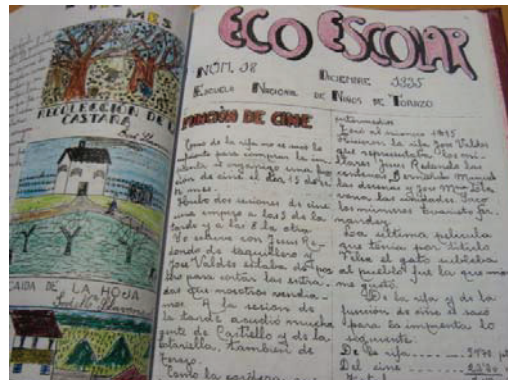 MES
RECOLECCIÓN DE L
CASTAÑA
CAIDA DE LA HOJA
ECO ESCOLAR
NÚM. 98
DICIEMBRE 1935
ESCUELA NACIONAL DE NIÑOS DE TORAZO
FUNCIÓN DE CINE
Como de la rifa no se saco lo
suficiente para comprar la im
prenta se organizo una fun
ción de cine el día 15 de es
te mes.
Hubo dos sesiones de cine
una empezo a las 3 de la
tarde y a las 8 la otra.
Yo estuve con Jesus Re
dondo de taquillero y
Jose Valdés estaba de por
tero para cortar las entra
das que nosotros vendia
mos. A la sesion de
la tarde acudio mucha
gente de Castiello y de la
tambien de
Como la
intermedios
el numero 1815
Hicieron la rifa Jose Valdés
que representaba los mi
llares Jesus Redondo las
centenas Bernardo Miguel
las decenas y Jose Mª
las unidades. Saco
los numeros Evaristo Fer
nandez.
La ultima pelicula
que tenia por titulo
Felix el gato
al pueblo fue la que mas
me gustó.
De la rifa y de la
función de cine se saco
para la imprenta lo
siguiente.
De la rifa
Del cine